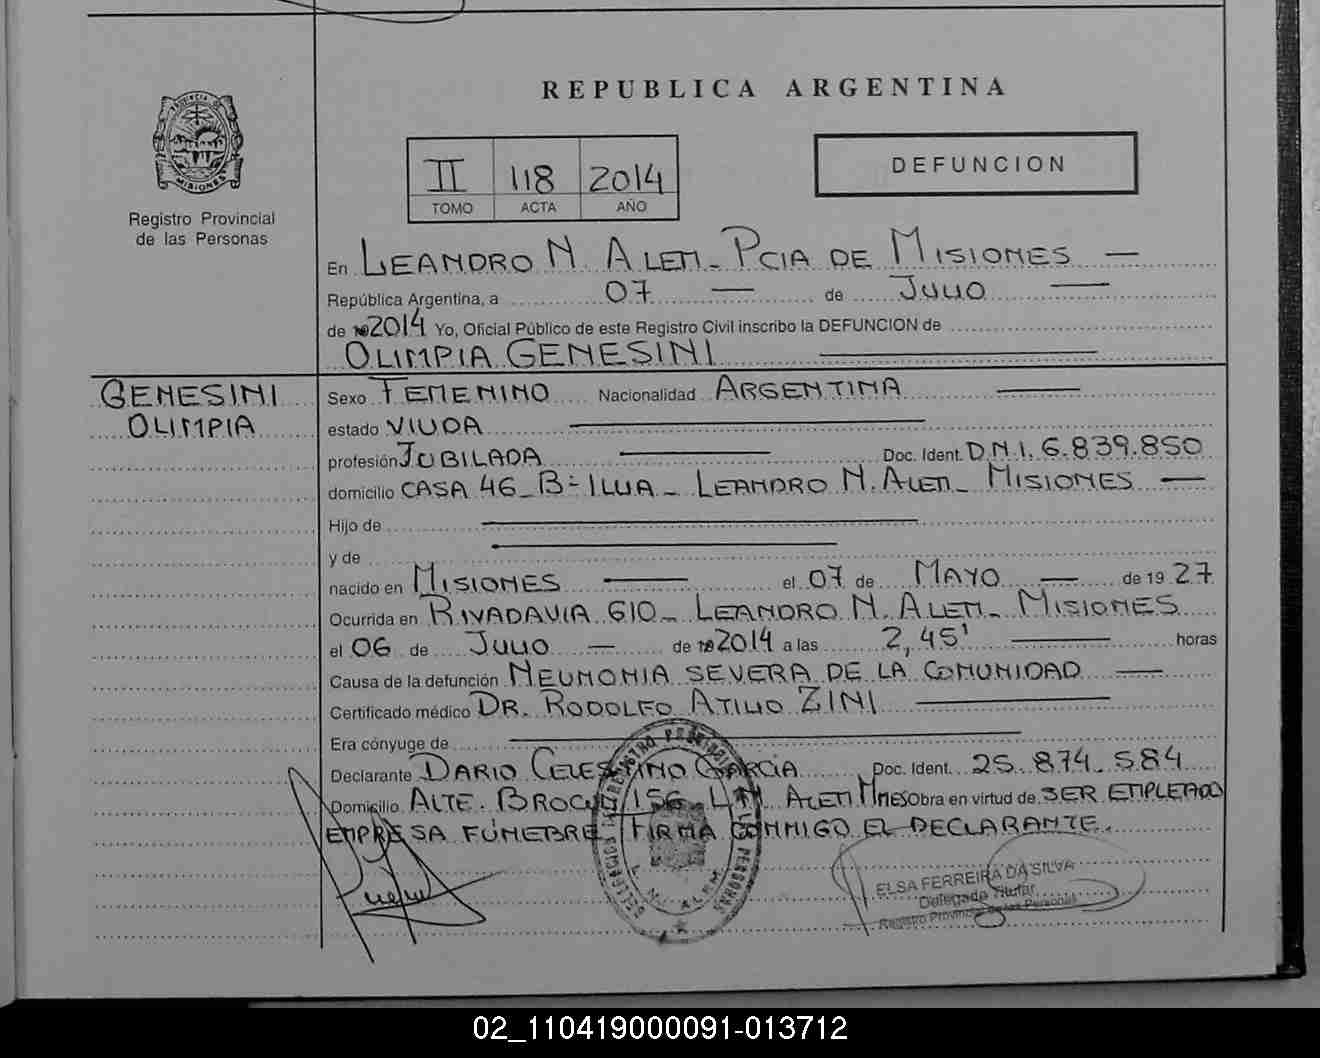 REPUBLICA ARGENTINA
PROVINCIA DE
MISIONES
Registro Provincial
de las Personas
II 118 2014
TOMO ACTA AÑO
DEFUNCION
En LEANDRO N. ALEM - PCIA DE MISIONES —
República Argentina, a 07 — de JULIO —
de 2014 Yo, Oficial Público de este Registro Civil inscribo la DEFUNCION de
OLIMPIA GENESINI
GENESINI
OLIMPIA
Sexo FEMENINO Nacionalidad ARGENTINA —
estado VIUDA —
profesión JUBILADA — Doc. Ident. D.N.I. 6.839.850
domicilio CASA 46 - Bº ILLIA - LEANDRO N. ALEM - MISIONES —
Hijo de —
y de —
nacido en MISIONES — el 07 de MAYO — de 19 27
Ocurrida en RIVADAVIA 610 - LEANDRO N. ALEM - MISIONES
el 06 de JULIO — de 2014 a las 2,45' — horas
Causa de la defunción NEUMONIA SEVERA DE LA COMUNIDAD —
Certificado médico DR. RODOLFO ATILIO ZINI —
Era cónyuge de —
Declarante DARIO CELESTINO GARCIA Doc. Ident. 25.874.584
Domicilio ALTE. BROWN 156 L.N. ALEM MNES Obra en virtud de SER EMPLEADO
EMPRESA FÚNEBRE FIRMA CONMIGO EL DECLARANTE.
ELSA FERREIRA DA SILVA
Delegada Titular
Registro Provincial de las Personas
02_110419000091-013712